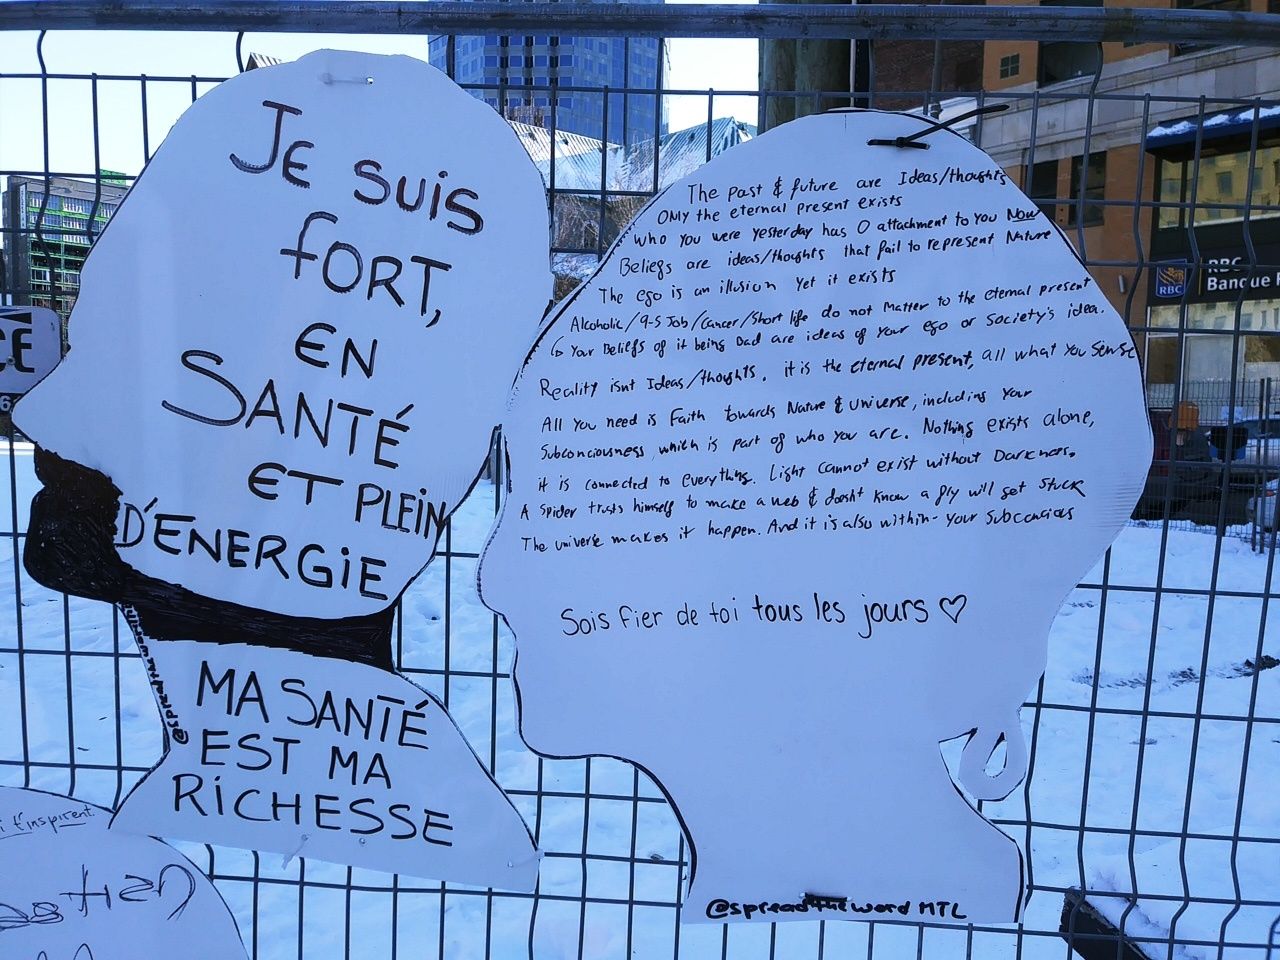 JE SUIS
FORT,
EN
SANTÉ
ET PLEIN
D'ÉNERGIE
MA SANTÉ
EST MA
RICHESSE
The past & future are Ideas/thoughts
ONLY the eternal present exists
Who you were yesterday has 0 attachment to you Now
Beliefs are ideas/thoughts that fail to represent Nature
The ego is an illusion yet it exists
Alcoholic/9-5 Job/Cancer/Short life do not matter to the eternal present
↳ Your Beliefs of it being bad are ideas of your ego or Society's idea.
Reality isnt Ideas/thoughts, it is the eternal present, all what you sense
All you need is Faith towards Nature & universe, including your
Subconciousness, which is part of who you are. Nothing exists alone,
it is connected to everything. Light cannot exist without Darkness.
A spider trusts himself to make a web & doesnt know a fly will get stuck
The universe makes it happen. And it is also within- your Subconcious
Sois fier de toi tous les jours ♡
@spread the word MTL
RBC
RBC
Banque
CE
t'inspirent.